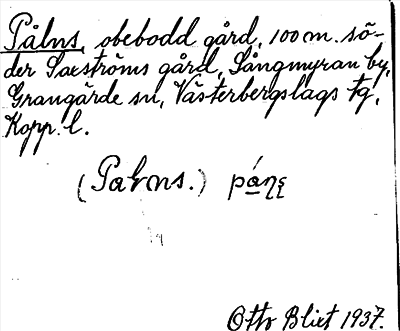 Pålns, obebodd gård, 100 m. sö-
der Saxströms gård, Sångmyran by,
Grangärde sn, Västerbergslags tg,
Kopp. l.
(Palmns.)
Otto Blixt 1937.